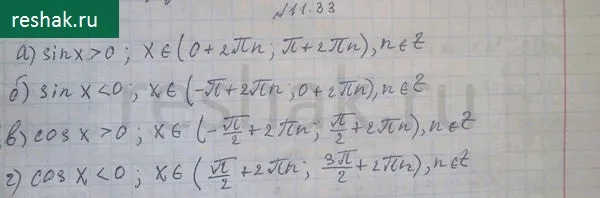 reshak.ru
№11.33
а) sin x > 0 ; x ∈ (0 + 2πn ; π + 2πn), n ∈ Z
б) sin x < 0 ; x ∈ (-π + 2πn ; 0 + 2πn), n ∈ Z
в) cos x > 0 ; x ∈ (-π/2 + 2πn ; π/2 + 2πn), n ∈ Z
г) cos x < 0 ; x ∈ (π/2 + 2πn ; 3π/2 + 2πn), n ∈ Z